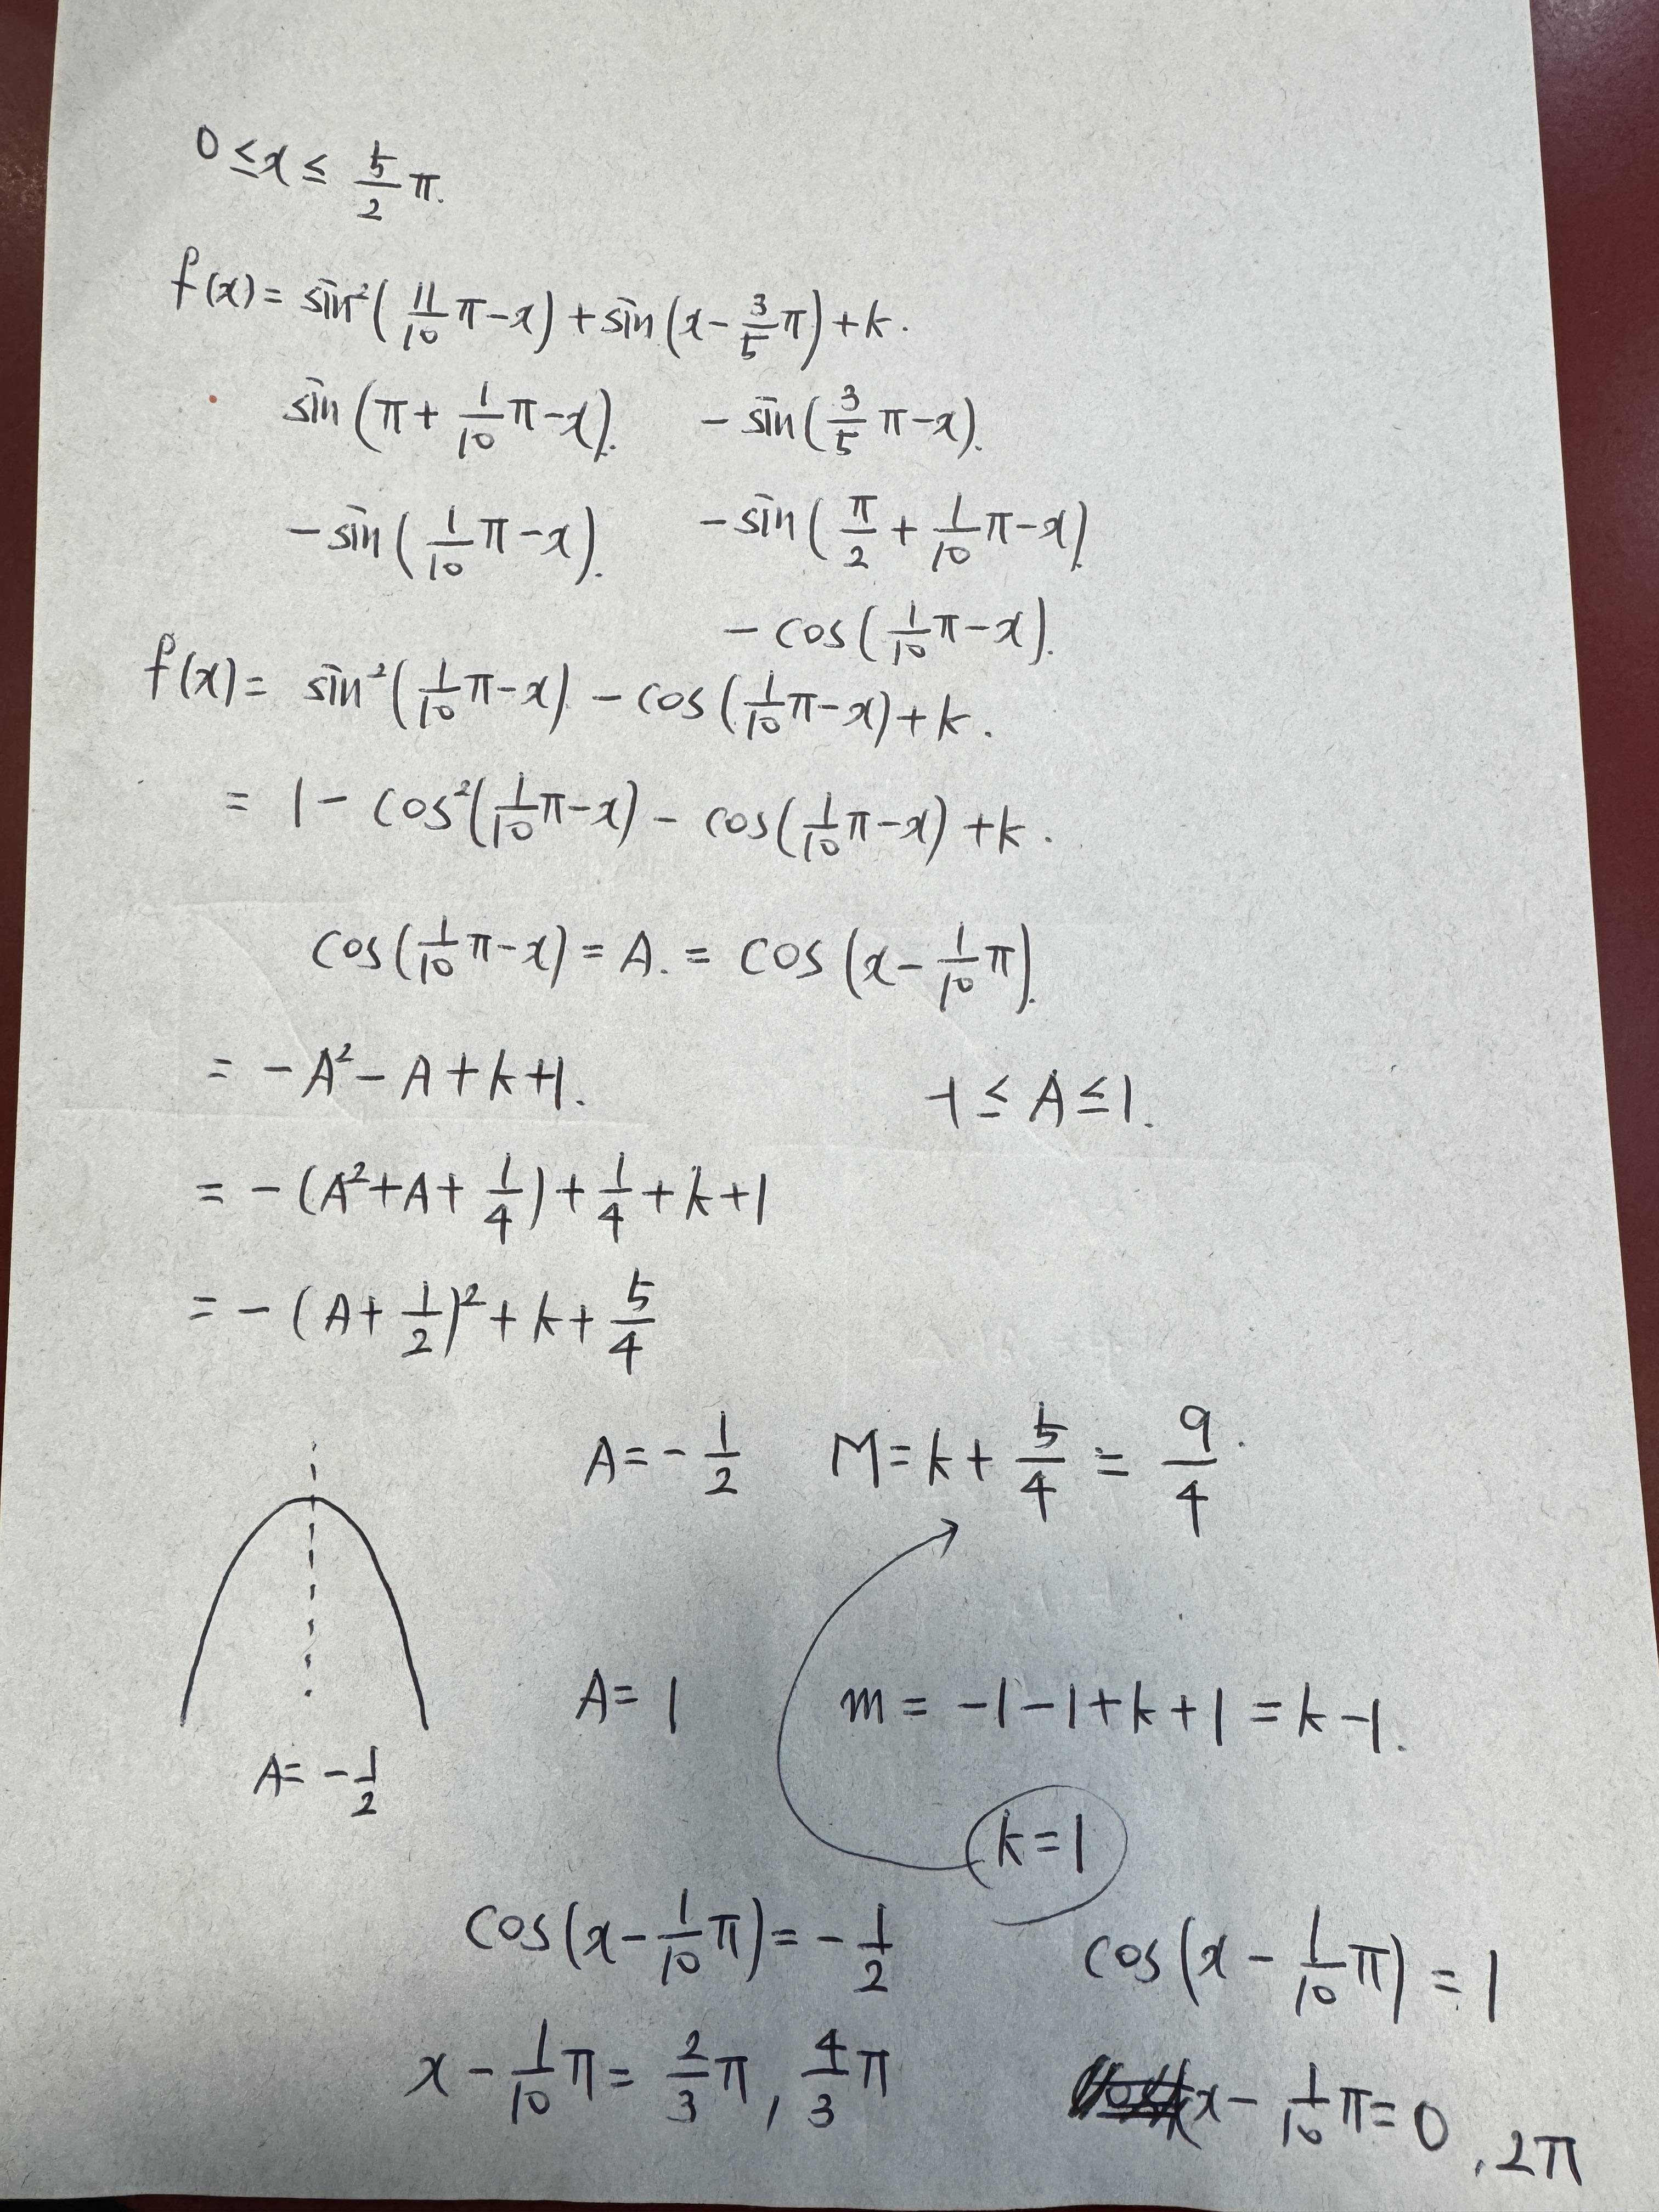 0 ≤ x ≤ 5/2 π.
f(x) = sin²(11/10 π - x) + sin(x - 3/5 π) + k.
sin(π + 1/10 π - x). - sin(3/5 π - x).
- sin(1/10 π - x). - sin(π/2 + 1/10 π - x).
- cos(1/10 π - x).
f(x) = sin²(1/10 π - x) - cos(1/10 π - x) + k.
= 1 - cos²(1/10 π - x) - cos(1/10 π - x) + k.
cos(1/10 π - x) = A. = cos(x - 1/10 π).
= - A² - A + k + 1. -1 ≤ A ≤ 1.
= - (A² + A + 1/4) + 1/4 + k + 1
= - (A + 1/2)² + k + 5/4
A = - 1/2 M = k + 5/4 = 9/4.
A = 1 m = -1 - 1 + k + 1 = k - 1.
A = - 1/2
k = 1
cos(x - 1/10 π) = - 1/2 cos(x - 1/10 π) = 1
x - 1/10 π = 2/3 π, 4/3 π x - 1/10 π = 0, 2π